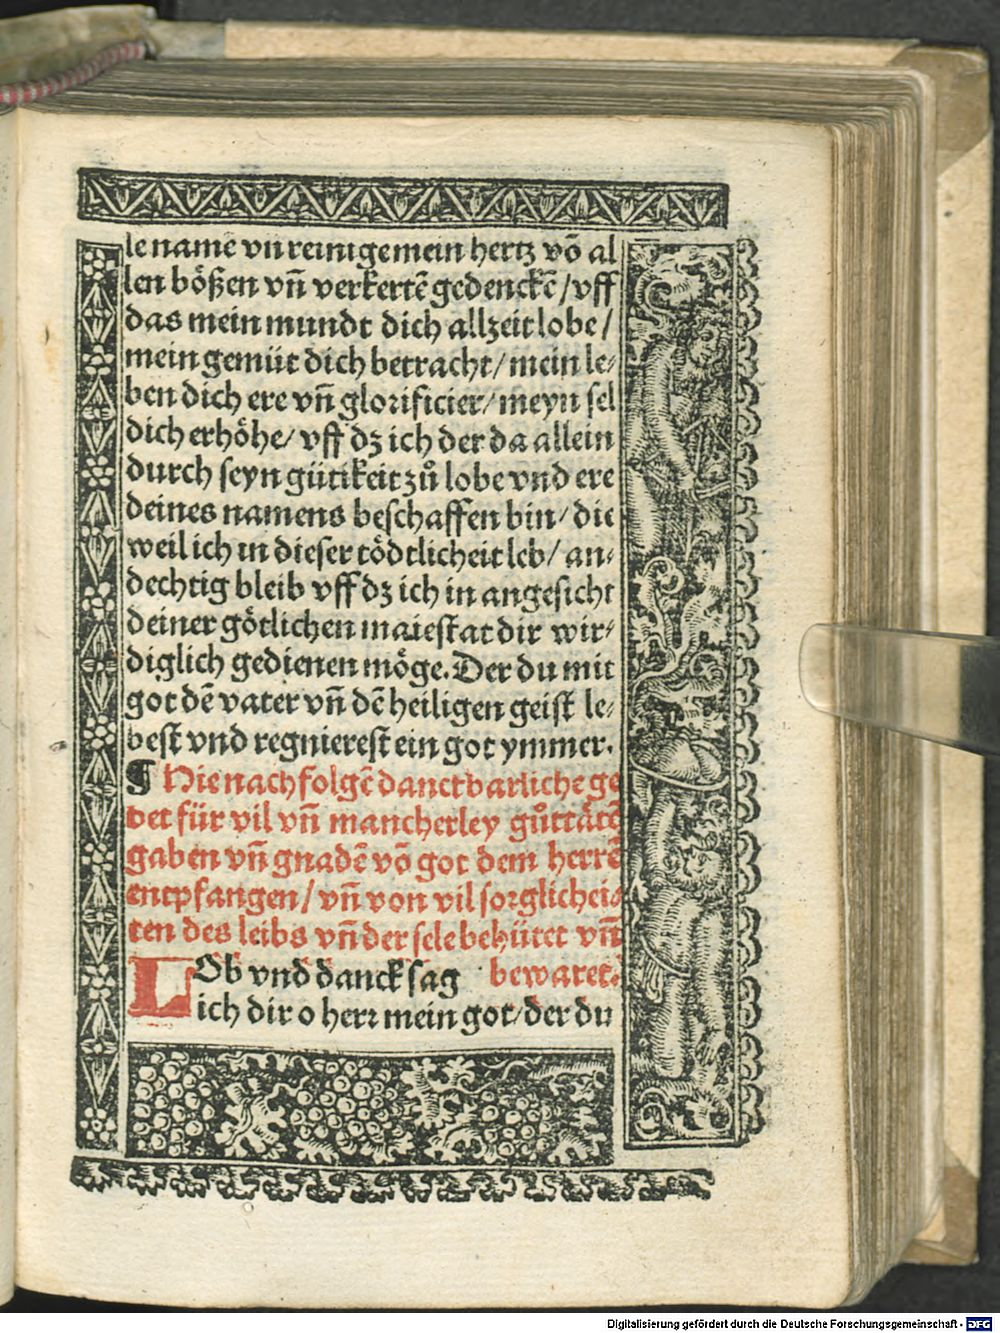 le namē vn̄ reinige mein hertz vō al
len bößen vn̄ verkertē gedenckē / vff
das mein mundt dich allzeit lobe /
mein gemüt dich betracht / mein le⸗
ben dich ere vn̄ glorificier / meyn sel
dich erhöhe / vff dz ich der da allein
durch seyn gütikeit zů lobe vnd ere
deines namens beschaffen bin / die
weil ich in dieser tödtlicheit leb / an⸗
dechtig bleib vff dz ich in angesicht
deiner götlichen maiestat dir wir⸗
diglich gedienen möge. Der du mit
got dē vater vn̄ dē heiligen geist le⸗
best vnd regnierest ein got ymmer.
¶ Hie nach folgē danctbarliche ge
bet für vil vn̄ mancherley gůttätē
gaben vn̄ gnadē vō got dem herrē
entpfangen / vn̄ von vil sorglichei⸗
ten des leibs vn̄ der sele behütet vn̄
bewaret.
LOb vnd danck sag
ich dir o herꝛ mein got / der du
Digitalisierung gefördert durch die Deutsche Forschungsgemeinschaft - DFG